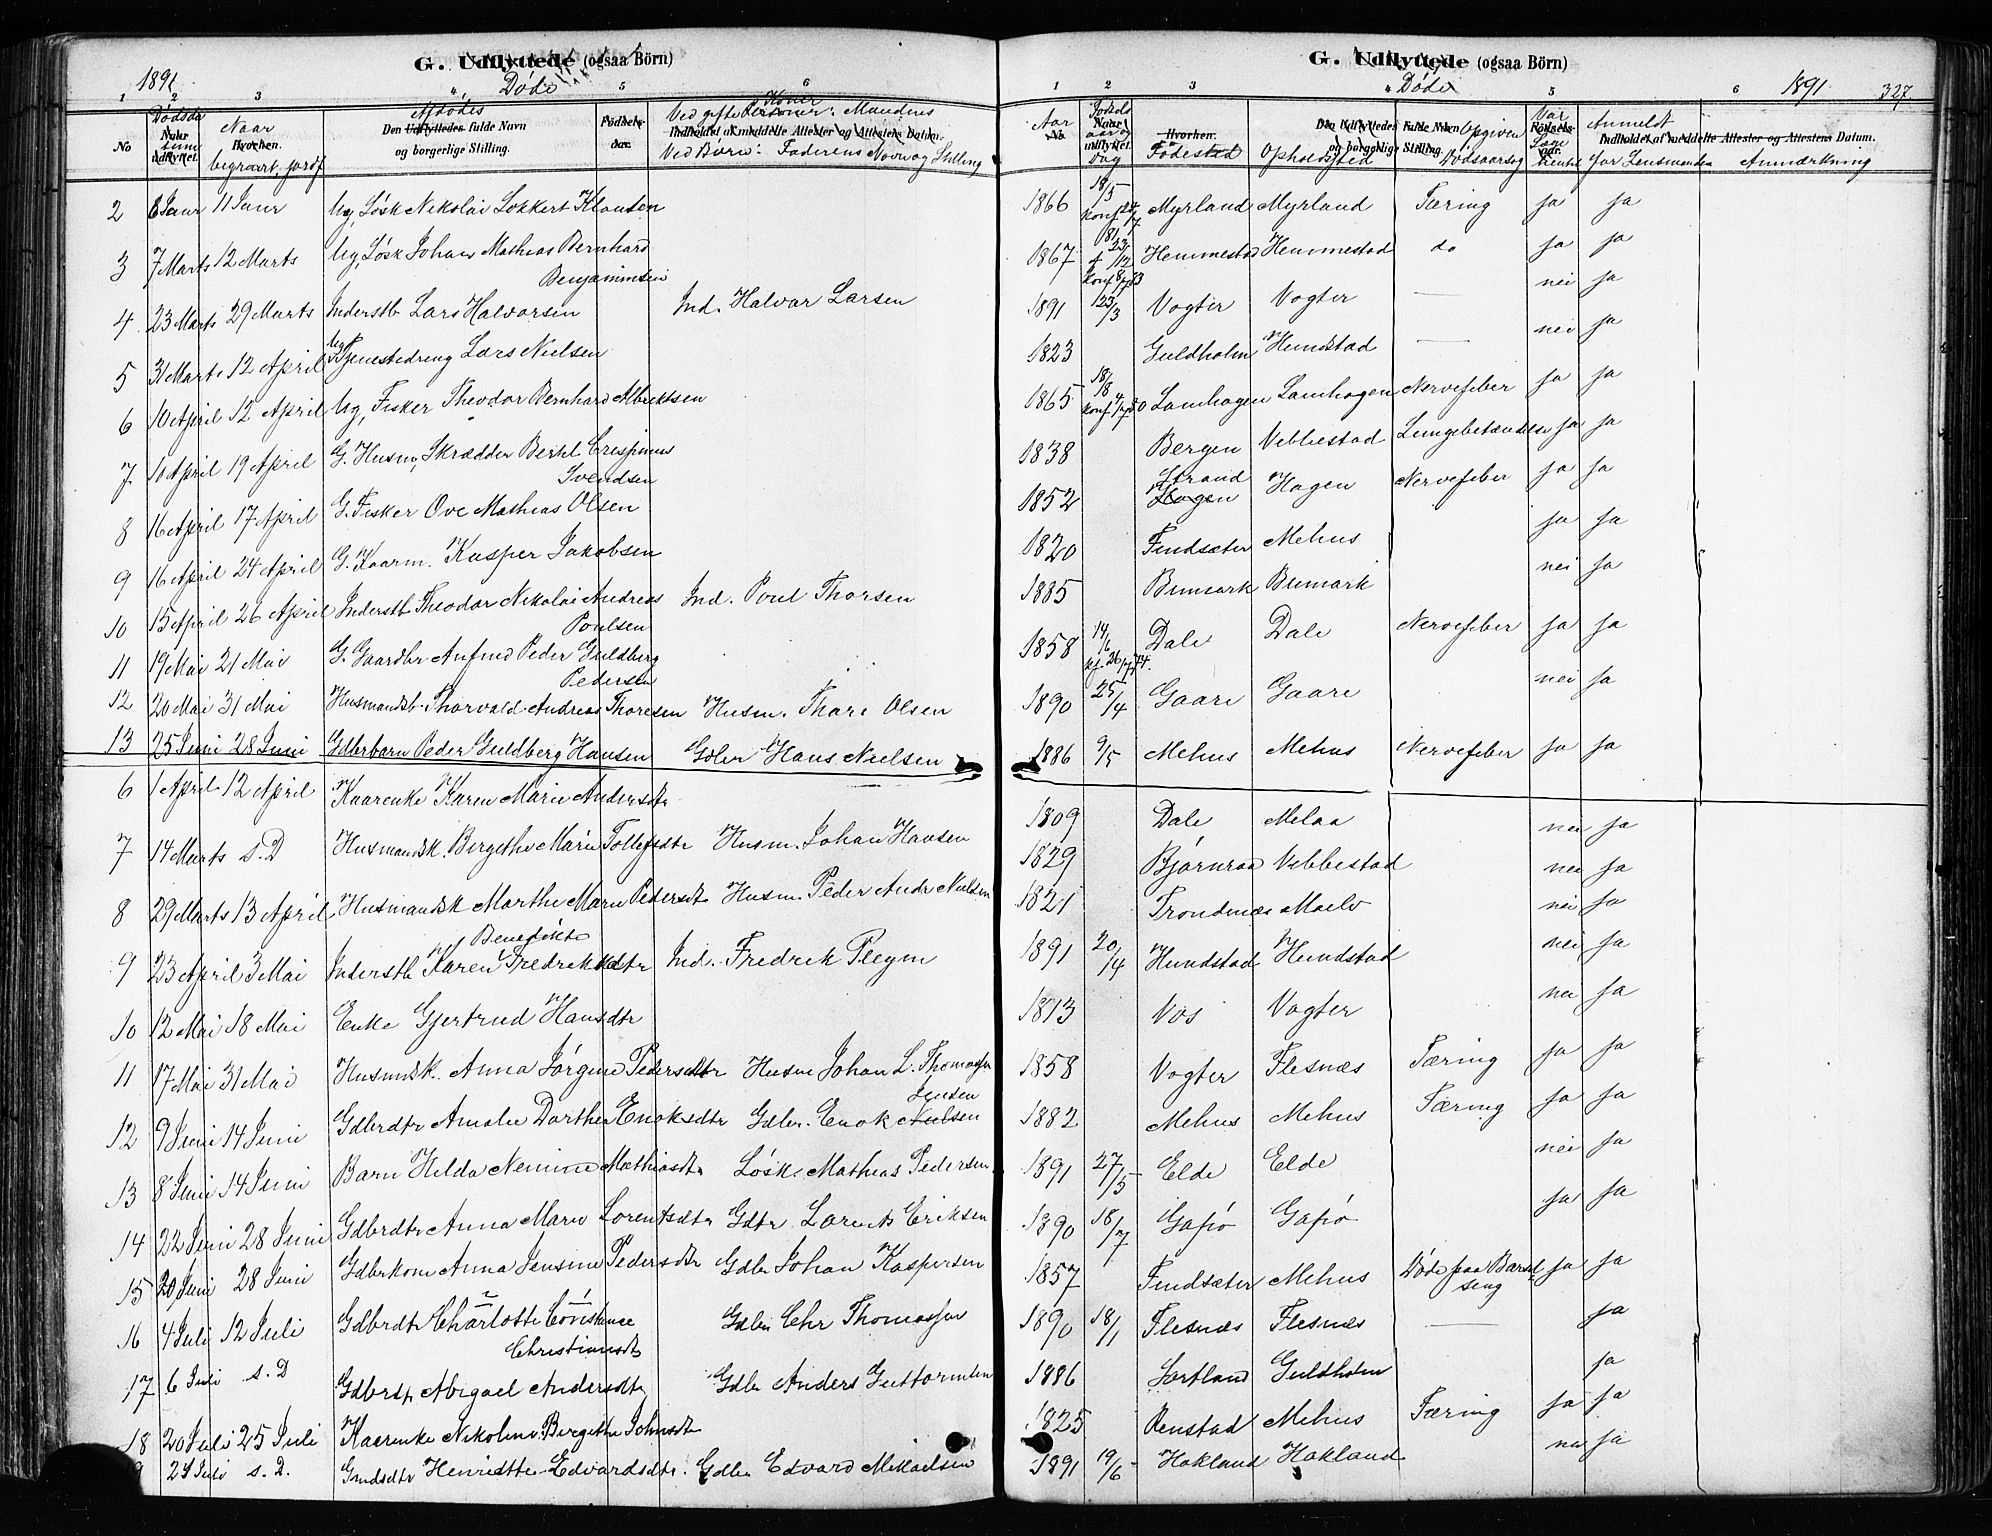 1891
G. Udflyttede (ogsaa Börn)
Døde
1 2 3 4 5 6
No
Naar udflyttet.
Naar
Hvorhen.
begravet, jordf
Afdødes
Den Udflyttedes fulde Navn
og borgerlige Stilling.
Födsels-
dat.
Ved gifte Koner: Mandens
Indholdet af meddelte Attester og Attestens Datum.
Ved Börn: Faderens Navn og Stilling
2 8 Janr 11 Janr Ug. Løsk Nikolai Lokkert Klausen
3 7 Marts 12 Marts Ug. Løsk Johan Mathias Bernhard
Benjaminsen
4 23 Marts 29 Marts Inderstb Lars Halvorsen Ind. Halvar Larsen
5 31 Marts 12 April Ug Tjenestedreng Lars Nielsen
6 10 April 12 April Ug. Fisker Theodor Bernhard Albriktsen
7 10 April 19 April G. Husm. Skrædder Bertel Crispinus
Svendsen
8 16 April 17 April G. Fisker Ove Mathias Olsen
9 16 April 24 April G. Kaarm. Kasper Jakobsen
10 15 April 26 April Inderstb Theodor Nikolai Andreas Ind. Poul Thorsen
Poulsen
11 19 Mai 21 Mai G. Gaardbr Arfind Peder Guldberg
Pedersen
12 20 Mai 31 Mai Husmandsb. Thorvald Andreas Thoresen Husm. Thore Olsen
13 25 Juni 28 Juni Gdbrbarn Peder Guldberg Hansen Gdbr Hans Nielsen
6 1 April 12 April Kaarenke Karen Marie Andersdtr
7 14 Marts s. D Husmandsk. Bergithe Marie Tollefsdtr Husm. Johan Hansen
8 29 Marts 13 April Husmandsk Marthe Marie Pedersdtr Husm. Peder Andr Nielsen
Benedikte
9 23 April 3 Mai Inderstb Karen Fredriksdtr Ind. Fredrik Pleym
10 12 Mai 18 Mai Enke Gjertrud Hansdtr
11 17 Mai 31 Mai Husmdsk. Anna Jørgine Pedersdtr Husm Johan L. Thomassen
Jensen
12 9 Juni 14 Juni Gdbrdtr Amalie Dorthea Enoksdtr Gdbr. Enok Nielsen
13 8 Juni 14 Juni Barn Hilda Nemine Mathiasdtr Løsk. Mathias Pedersen
14 22 Juni 28 Juni Gdbrdtr Anna Marie Lorentsdtr Gdbr Lorents Eriksen
15 20 Juni 28 Juni Gdbrkone Anna Jensine Pedersdtr Gdbr Johan Kaspersen
16 4 Juli 12 Juli Gdbrdtr Charlotte Constance Gdbr Chr Thomassen
Christiansdtr
17 6 Juli s. D Gdbrdtr Abigael Andersdtr Gdbr Anders Guttormsen
18 20 Juli 25 Juli Kaarenke Nikoline Bergithe Johnsdtr
24 Juli s. D. Gmdsdtr Henriette Edvardsdtr. Gdbr Edvard Mikaelsen
G. Udflyttede (ogsaa Börn)
Døde
1891 327.
1 2 3 4 5 6
Aar
No
Naar
udflyttet.
Dag
Hvorhen.
Fødested
Den Udflyttedes fulde Navn
og borgerlige Stilling.
Opholdssted
Opgiven
Dødsaarsag
Var
Læge
hentet
Anmeldt
Indholdet af meddelte Attester og Attestens Datum.
for Lensmanden Anmærkning
1866 18/5 Konf 24/7 81 Myrland Myrland Tæring ja ja
1867 23/12 Konf 8/7 83 Hemmestad Hemmestad do ja ja
1891 23/3 Vogter Vogter — nei ja
1823 Guldholm Hundstad — nei ja
1865 18/8 Konf 4/7 80 Lamhagen Lamhagen Nervefeber ja ja
1838 Bergen Vebbestad Lungebetændelse ja ja
Strand
1852 Hagen Hagen Nervefeber ja ja
1820 Findsæter Mehus ja ja
1885 Bremark Bremark nei ja
1858 14/6 kf. 26/7 74. Dale Dale Nervefeber ja ja
1890 25/4 Gaare Gaare nei ja
1886 9/5 Mehus Mehus Nervefeber ja ja
1809 Dale Melaa nei ja
1829 Bjørnraa Vebbestad nei ja
1821 Trondenæs Maelv nei ja
1891 20/4 Hundstad Hundstad nei ja
1813 Vos Vogter nei ja
1858 Vogter Flesnæs Tæring ja ja
1882 Mehus Mehus Tæring ja ja
1891 27/5 Elde Elde nei ja
1890 18/7 Gapø Gapø ja ja
1857 Findsæter Mehus Døde paa Barsel ja ja
seng
1890 18/1 Flesnæs Flesnæs — ja
1886 Sortland Guldholm ja
1825 Renstad Mehus Tæring ja ja
1891 19/6 Hokland Hokland nei ja